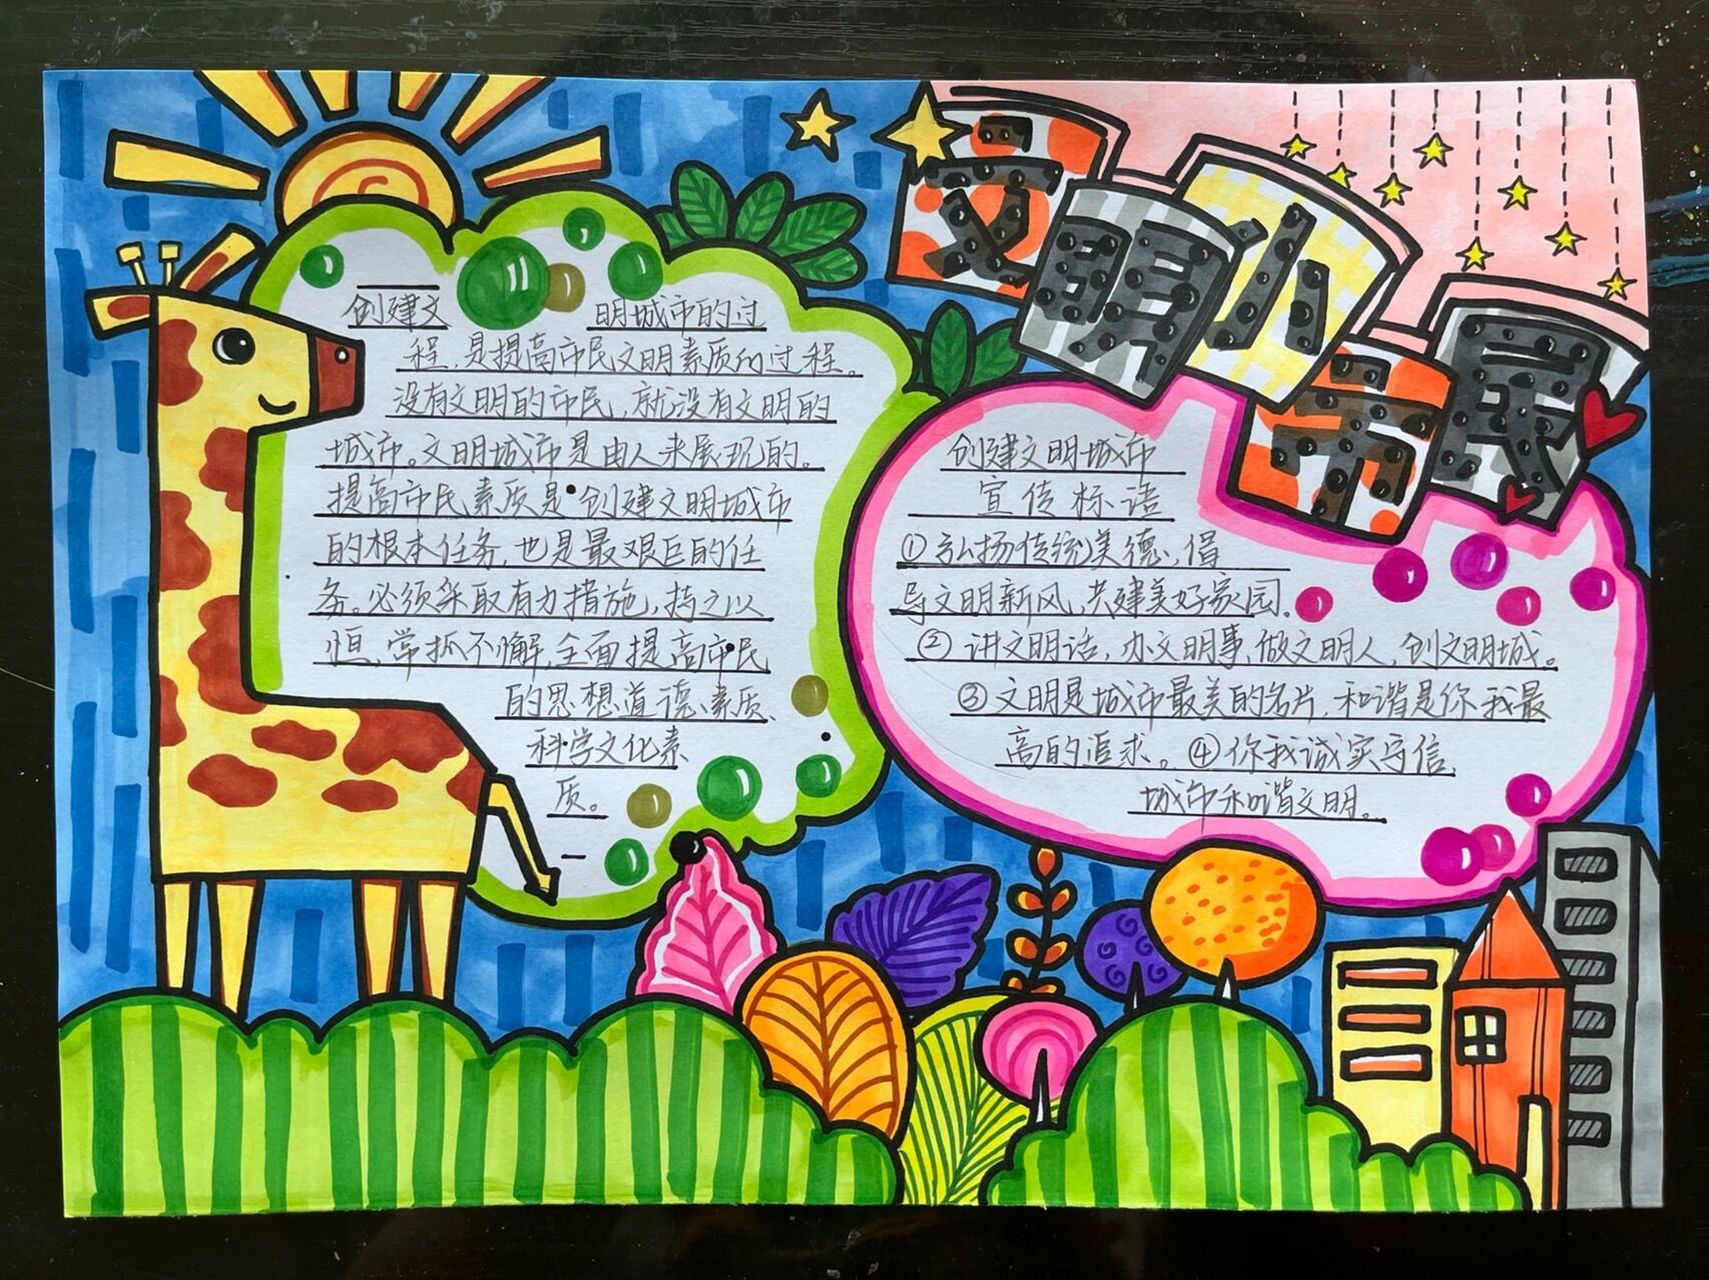 文明小市民
创建文 明城市的过
程，是提高市民文明素质的过程。
没有文明的市民，就没有文明的
城市。文明城市是由人来展现的。
提高市民素质是创建文明城市
的根本任务，也是最艰巨的任
务。必须采取有力措施，持之以
恒，常抓不懈，全面提高市民
的思想道德素质、
科学文化素
质。
创建文明城市
宣传标语
①弘扬传统美德，倡
导文明新风，共建美好家园。
②讲文明话，办文明事，做文明人，创文明城。
③文明是城市最美的名片，和谐是你我最
高的追求。④你我诚实守信，
城市和谐文明。